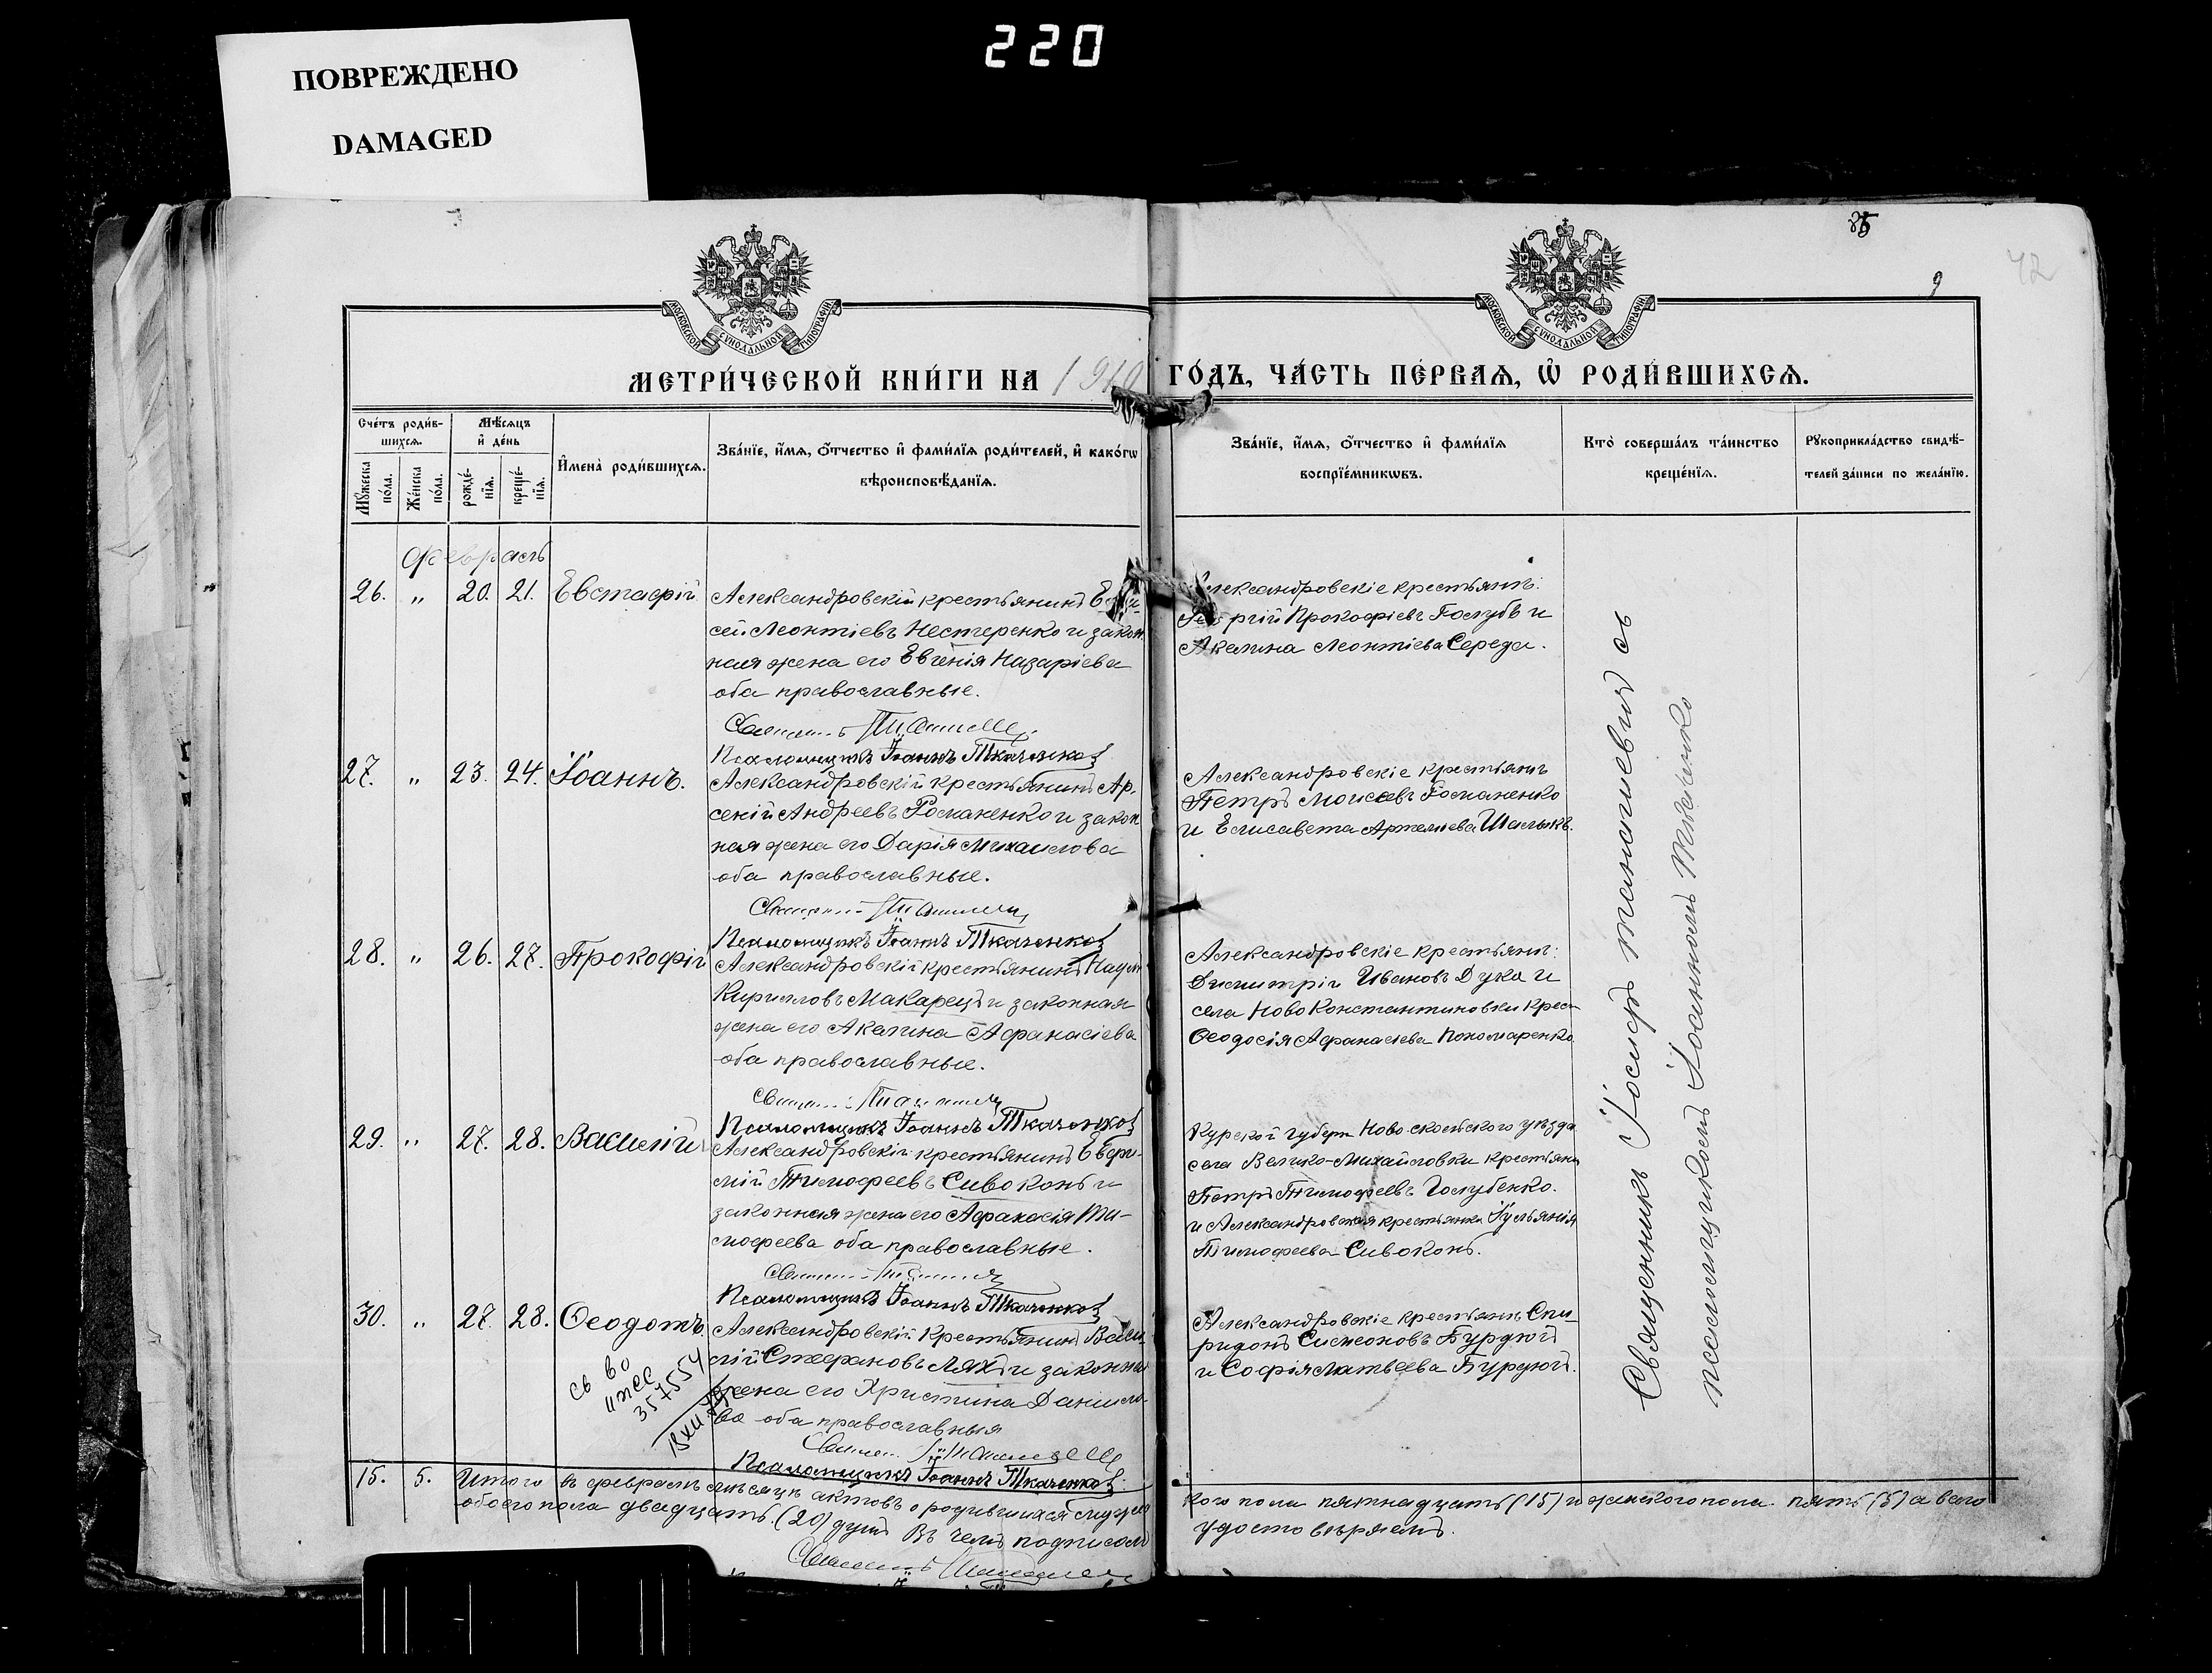 220
ПОВРЕЖДЕНО
DAMAGED
85
9
42
МОСКОВСКОЙ СѴНОДАЛЬНОЙ ТИПОГРАФІИ
МОСКОВСКОЙ СѴНОДАЛЬНОЙ ТИПОГРАФІИ
МЕТРИ́ЧЕСКОЙ КНИ́ГИ НА 1910 ГО́ДЪ, ЧА́СТЬ ПЕ́РВАѦ, Ѡ҆ РОДИ́ВШИХСѦ.
Сче́тъ роди́в-
шихсѧ.
Мꙋ́жеска
по́ла.
Же́нска
по́ла.
Мѣ́сѧцъ
и҆ де́нь
рожде́-
нїѧ.
креще́-
нїѧ.
И҆мена̀ роди́вшихсѧ.
Зва́нїе, и҆́мѧ, ѻ҆́тчество и҆ фами́лїѧ роди́телей, и҆ како́гѡ
вѣроисповѣ́данїѧ.
Зва́нїе, и҆́мѧ, ѻ҆́тчество и҆ фами́лїѧ
воспрїе́мникѡвъ.
Кто̀ соверша́лъ та́инство
креще́нїѧ.
Рꙋкоприкла́дство свидѣ́-
телей за́писи по жела́нїю.
Февраль
26. „ 20. 21. Евстафій
Александровскій крестьянинъ Ели-
сей Леонтіевъ Нестеренко и закон
ная жена его Евгенія Назаріева
оба православные.
Псаломщикъ Іоаннъ Ткаченко
Александровскіе крестьяне:
Георгій Прокофіевъ Голубъ и
Акилина Леонтіева Середа.
27. „ 23. 24. Іоаннъ.
Александровскій крестьянинъ Ар-
сеній Андреевъ Романенко и закон
ная жена его Дарія Михаилова
оба православные.
Псаломщикъ Іоаннъ Ткаченко
Александровскіе крестьяне
Петръ Моисеевъ Романенко
и Елисавета Артемиева Шалыкъ.
28. „ 26. 27. Прокофій
Александровскій крестьянинъ Наум
Кирилловъ Макарецъ и законная
жена его Акилина Афанасіева
оба православные.
Псаломщикъ Іоаннъ Ткаченко
Александровскіе крестьяне:
Димитрій Ивановъ Дука и
села Ново Константиновки крест
Феодосія Афанасіева Пономаренко
29. „ 27. 28. Василій
Александровскій крестьянинъ Евфи-
мій Тимофеевъ Сивоконь и
законная жена его Афанасія Ти-
мофеева оба православные.
Псаломщикъ Іоаннъ Ткаченко
Курской губерн Ново-оскольского уѣзда
села Велико-Михайловки крестьянин
Петръ Тимофеевъ Голубенко.
и Александровская крестьянка Іульянія
Тимофеева Сивоконь.
30. „ 27. 28. Феодотъ.
Александровскій крестьянинъ Васи-
лій Стефановъ Ляхъ и законная
жена его Христина Данило-
ва оба православныя
Псаломщикъ Іоаннъ Ткаченко
Александровскіе крестьяне Спи-
ридонъ Симеоновъ Бурдюгъ
и Софія Матвеева Бурдюгъ.
св во
357554
Священникъ Іосифъ Танашевичъ съ
псаломщикомъ Іоанномъ Ткаченко
15. 5. Итого въ февралѣ мѣсяцѣ актовъ о родившихся мужес
кого пола пятнадцать (15) и женского пола пять (5) а всего
обоего пола двадцать (20) душъ Въ чемъ подписомъ
удостовѣряемъ.